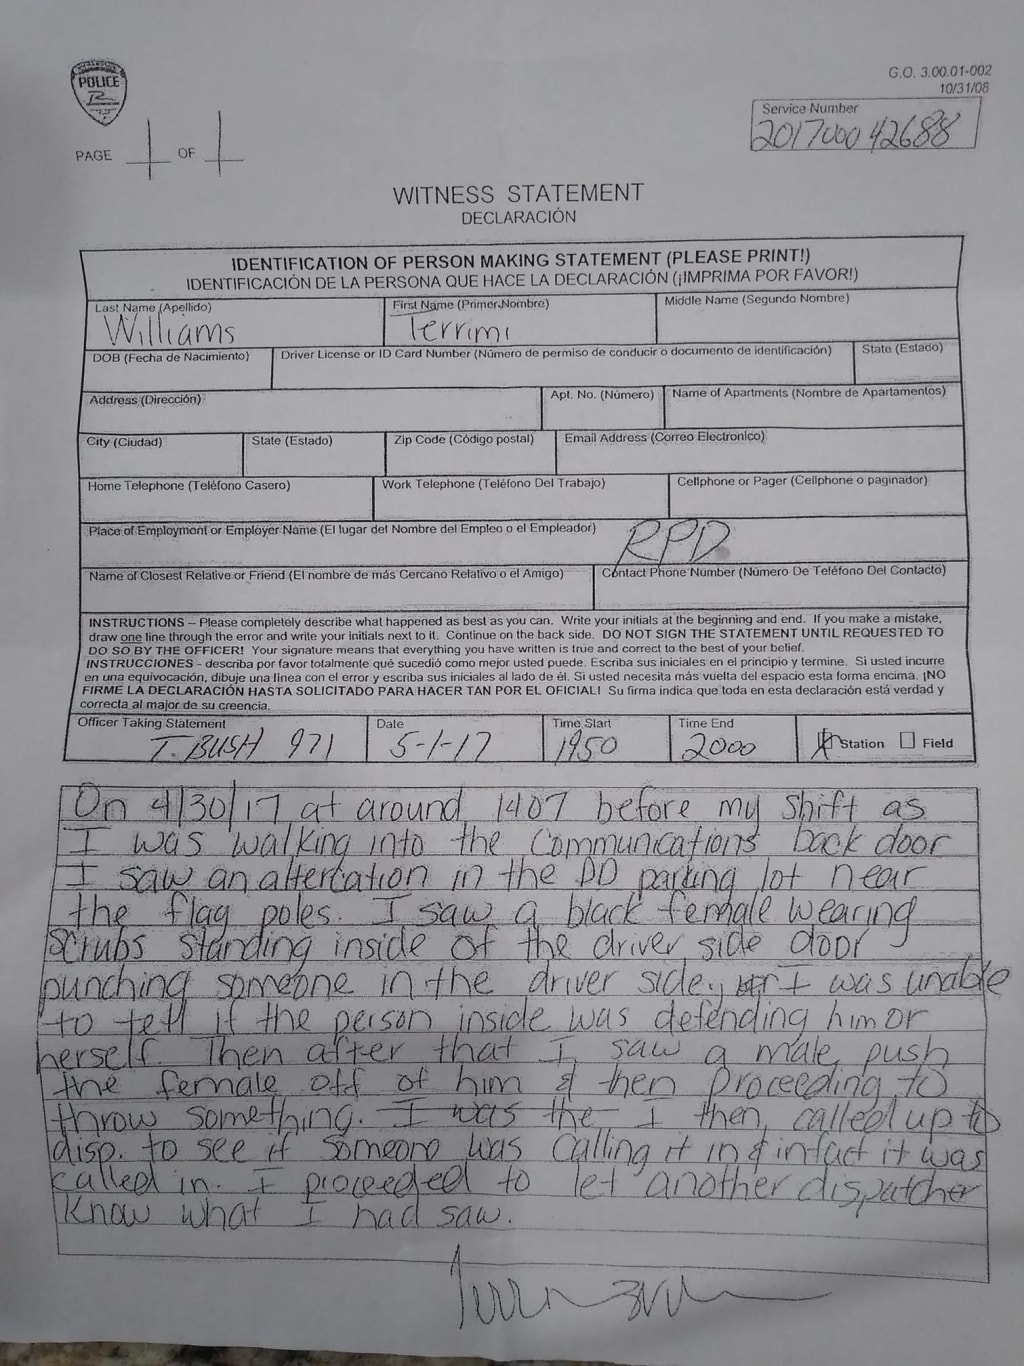 POLICE
R
G.O. 3.00.01-002
10/31/08
Service Number
201700042688
PAGE 1 OF 1
WITNESS STATEMENT
DECLARACIÓN
IDENTIFICATION OF PERSON MAKING STATEMENT (PLEASE PRINT!)
IDENTIFICACIÓN DE LA PERSONA QUE HACE LA DECLARACIÓN (¡IMPRIMA POR FAVOR!)
Last Name (Apellido) First Name (Primer Nombre) Middle Name (Segundo Nombre)
Williams Terrimi
DOB (Fecha de Nacimiento) Driver License or ID Card Number (Número de permiso de conducir o documento de identificación) State (Estado)
Address (Dirección) Apt. No. (Número) Name of Apartments (Nombre de Apartamentos)
City (Ciudad) State (Estado) Zip Code (Código postal) Email Address (Correo Electronico)
Home Telephone (Teléfono Casero) Work Telephone (Teléfono Del Trabajo) Cellphone or Pager (Cellphone o paginador)
Place of Employment or Employer Name (El lugar del Nombre del Empleo o el Empleador) RPD
Name of Closest Relative or Friend (El nombre de más Cercano Relativo o el Amigo) Contact Phone Number (Número De Teléfono Del Contacto)
INSTRUCTIONS – Please completely describe what happened as best as you can. Write your initials at the beginning and end. If you make a mistake,
draw one line through the error and write your initials next to it. Continue on the back side. DO NOT SIGN THE STATEMENT UNTIL REQUESTED TO
DO SO BY THE OFFICER! Your signature means that everything you have written is true and correct to the best of your belief.
INSTRUCCIONES - describa por favor totalmente qué sucedió como mejor usted puede. Escriba sus iniciales en el principio y termine. Si usted incurre
en una equivocación, dibuje una línea con el error y escriba sus iniciales al lado de él. Si usted necesita más vuelta del espacio esta forma encima. ¡NO
FIRME LA DECLARACIÓN HASTA SOLICITADO PARA HACER TAN POR EL OFICIAL! Su firma indica que toda en esta declaración está verdad y
correcta al major de su creencia.
Officer Taking Statement Date Time Start Time End
T. BUSH 971 5-1-17 1950 2000 Station Field
On 4/30/17 at around 1407 before my shift as
I was walking into the Communications back door
I saw an altercation in the PD parking lot near
the flag poles. I saw a black female wearing
scrubs standing inside of the driver side door
punching someone in the driver side, I was unable
to tell if the person inside was defending him or
herself. Then after that I saw a male push
the female off of him & then proceeding to
throw something. I was the I then called up to
disp. to see if someone was calling it in & infact it was
called in. I proceeded to let another dispatcher
know what I had saw.